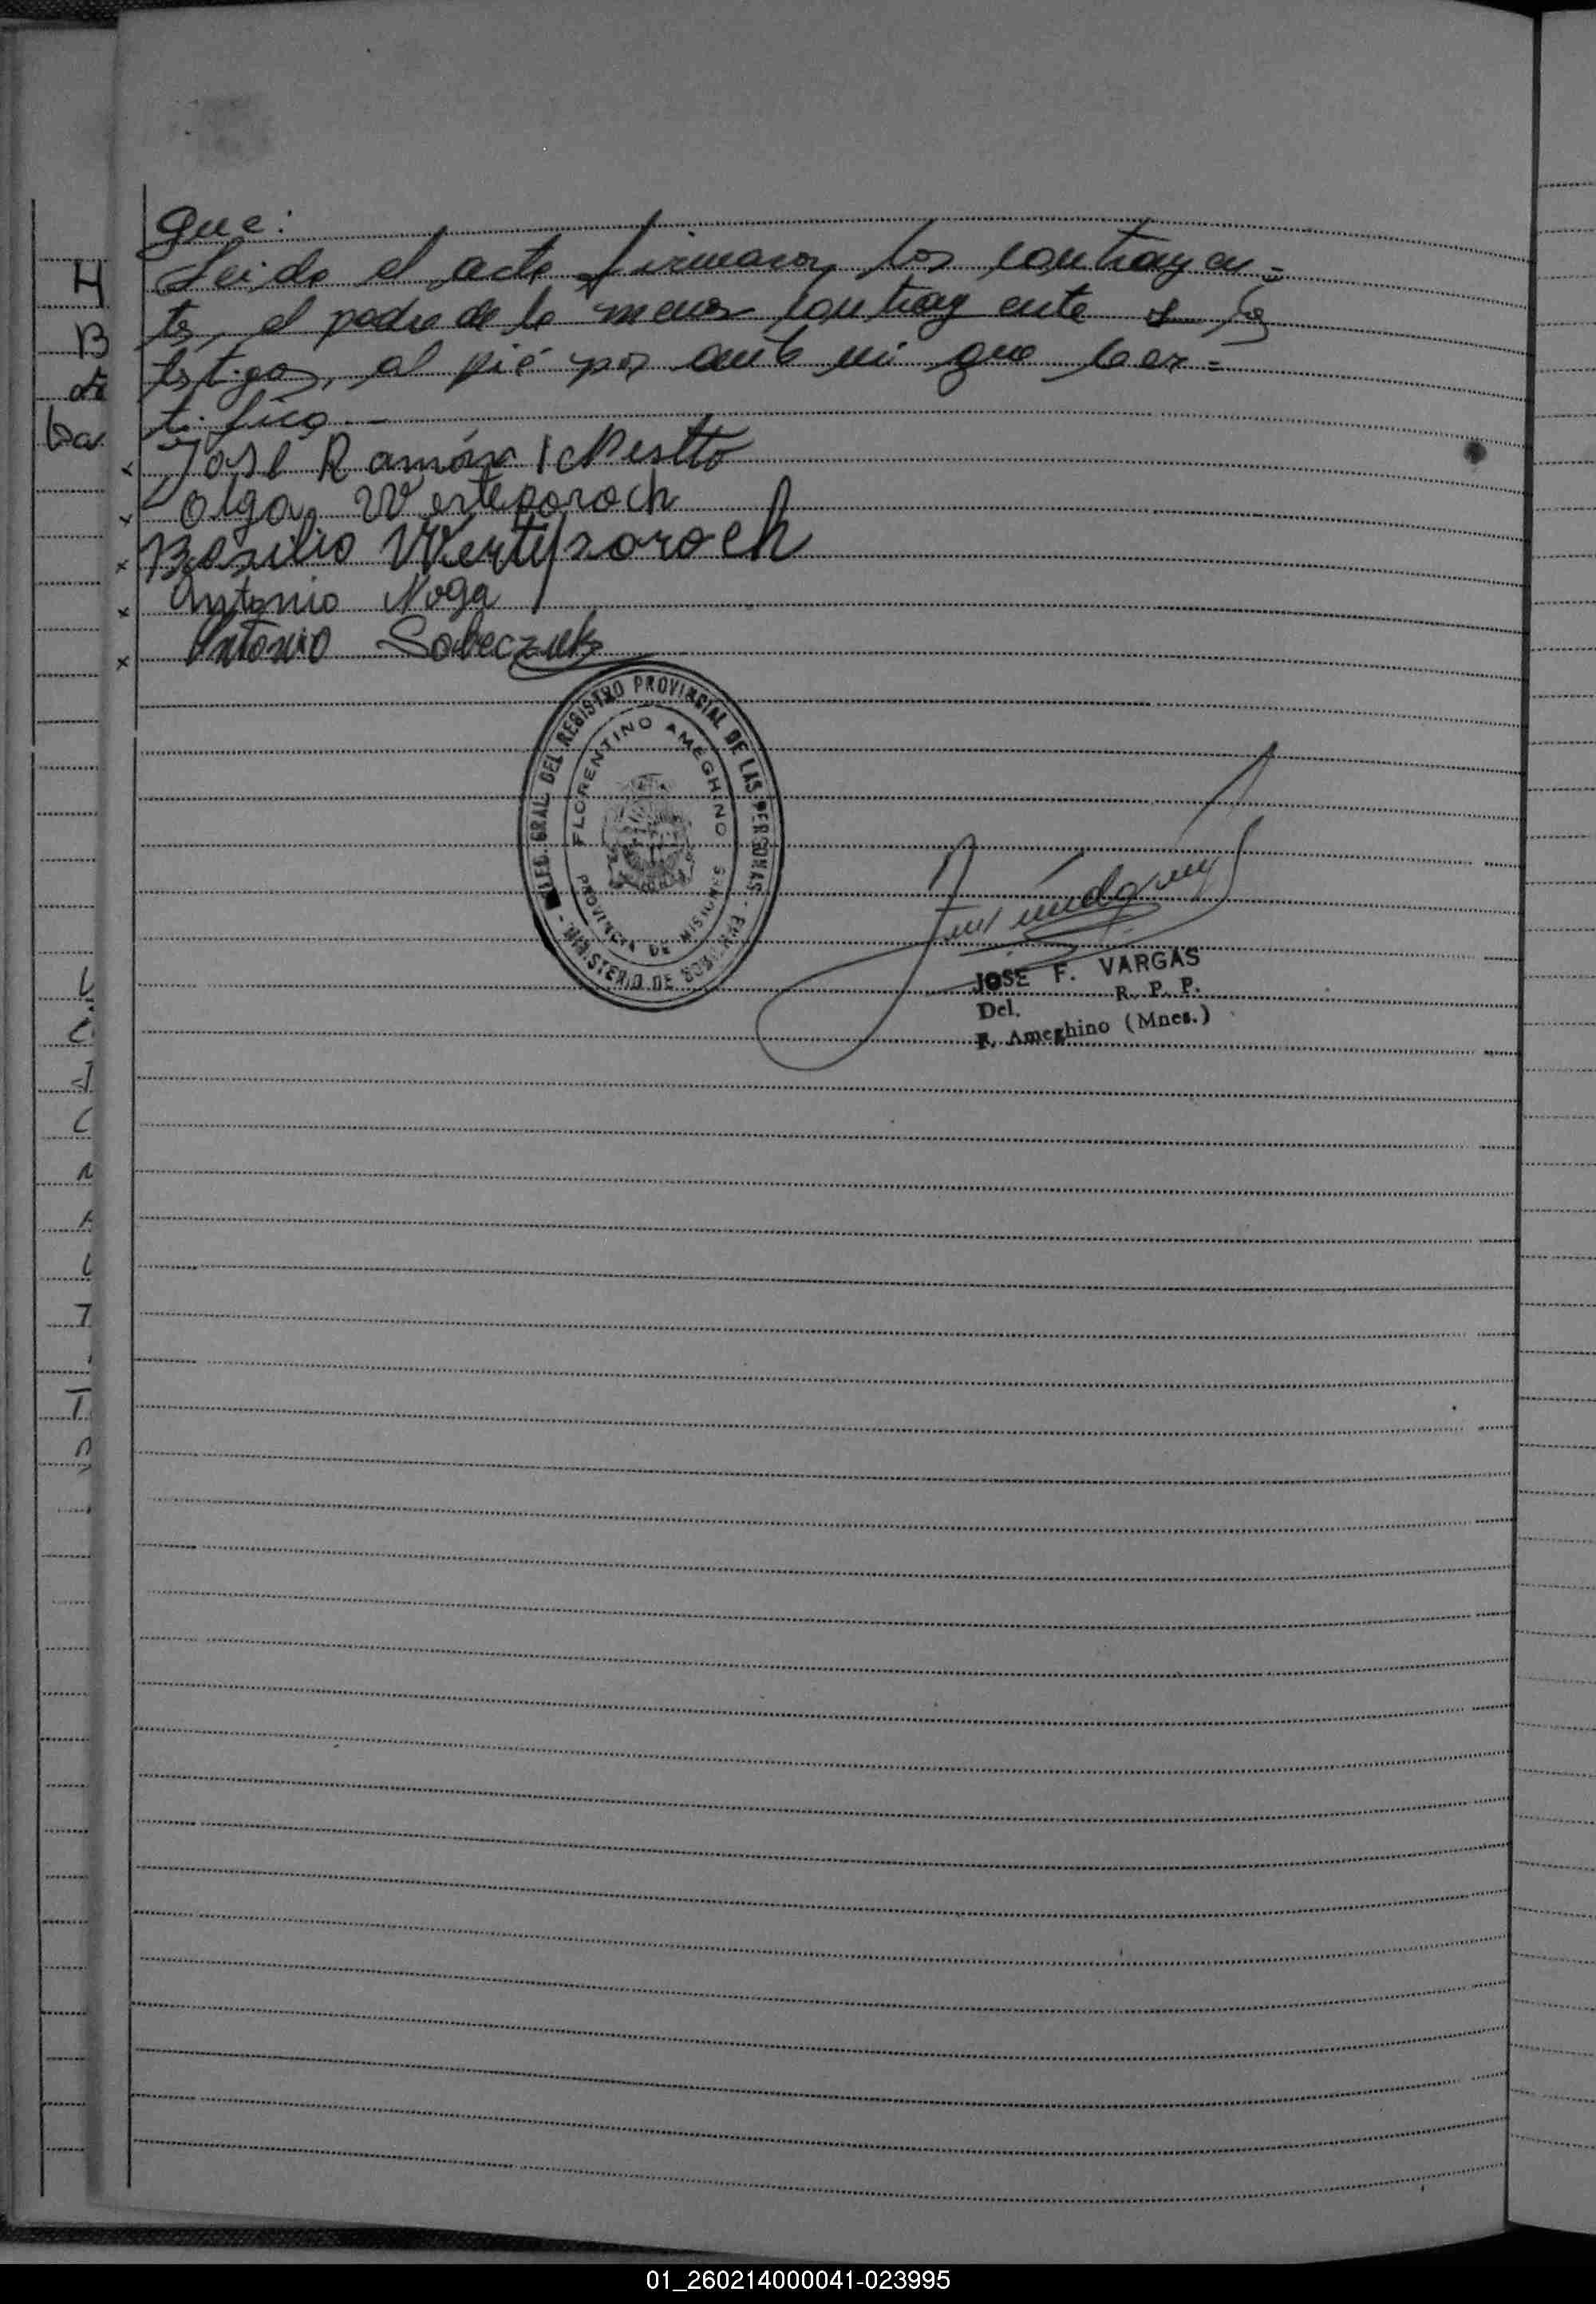 que:
Leida el acta firmaron los contrayen=
tes, el padre de la menor contrayente y los
testigos, al pié por ante mi que cer=
tifico.—
x José Ramón
x Olga Werteporoch
x Basilio Wertyporoch
x Antonio Noga
x Antonio Sobeczuk
DEL REGISTRO PROVINCIAL DE LAS PERSONAS - MINISTERIO DE GOBIERNO -
FLORENTINO AMEGHINO
PROVINCIA DE MISIONES
JOSE F. VARGAS
Del. R. P. P.
F. Ameghino (Mnes.)
H
B
ba
T
01_260214000041-023995